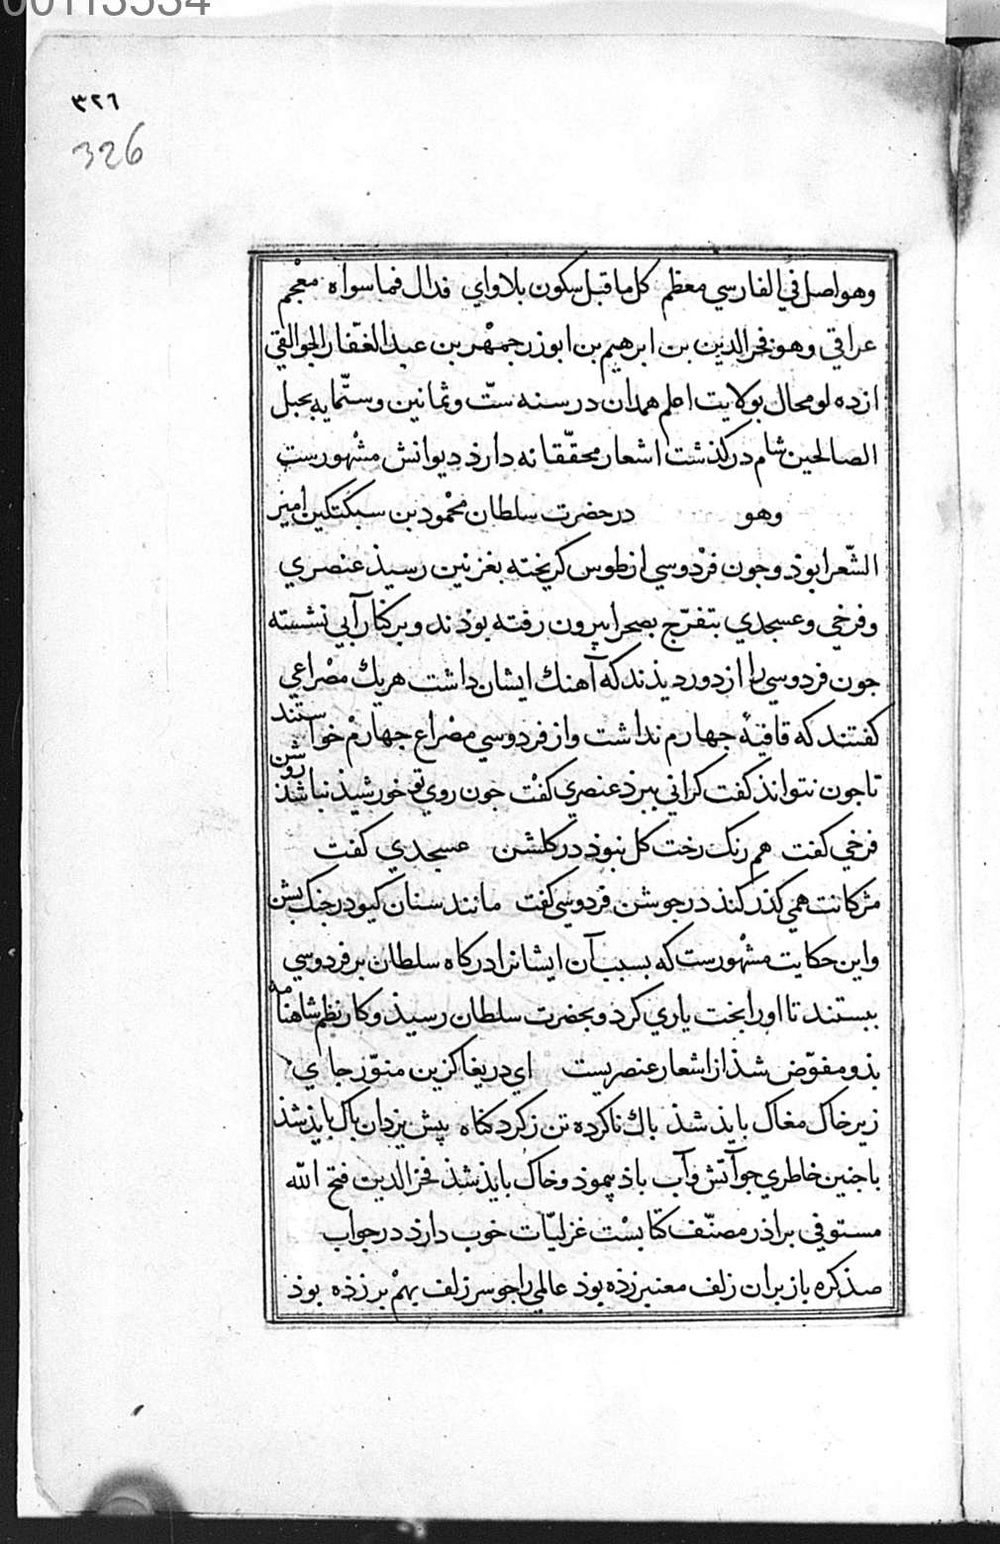 00113534
٣٢٦
326
وهو اصل في الفارسي معظم كل ما قبل سكون بلا واي فدال فما سواه معجم
عراقي وهو فخر الدين بن ابرهيم بن ابوزرجمهر بن عبد الغفار الجوالقي
از ده لومحال بولايت اعلم همدان در سنه ست و ثمانين وستمايه بجبل
الصالحين شام در كذشت اشعار محققانه دارذ ديوانش مشهورست
وهو در حضرت سلطان محمود بن سبكتكين امير
الشعرا بوذ وجون فردوسي از طوس كريخته بغزنين رسيذ عنصري
و فرخي و عسجدي بتفرج بصحرا بيرون رفته بوذند و بر كنار آبي نشسته
جون فردوسي را از دور ديذند كه آهنك ايشان داشت هر يك مصراعي
كفتند كه قافيه جهارم نداشت و از فردوسي مصراع جهارم خواستند
تا جون نتواند كفت كراني ببرذ عنصري كفت جون روي تو خورشيذ نباشذ روشن
فرخي كفت هم رنك رخت كل نبوذ در كلشن عسجدي كفت
مژكانت همي كذر كند در جوشن فردوسي كفت مانند سنان كيو در جنك بشن
و اين حكايت مشهورست كه بسبب آن ايشانرا دركاه سلطان بر فردوسي
ببستند تا اورا بخت ياري كرد و بحضرت سلطان رسيذ و كار نظم شاهنامه
بذو مفوض شذ از اشعار عنصريست اي دريغا كزين منور جاي
زير خاك مغاك بايذ شذ باك ناكرده تن ز كرد كناه پيش يزدان باك بايذ شذ
با جنين خاطري جو آتش و آب باذ پيموذ و خاك بايذ شذ فخر الدين فتح الله
مستوفي براذر مصنف كتابست غزليات خوب دارذ در جواب
صذ كره باز بران زلف معنبر زده بوذ عالمي را جو سر زلف بهم بر زده بوذ